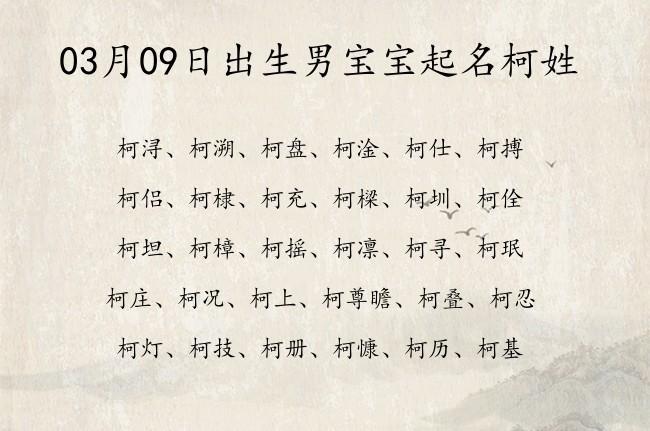 03月09日出生男宝宝起名柯姓
柯浔、柯溯、柯盘、柯淦、柯仕、柯搏
柯侣、柯棣、柯充、柯樑、柯圳、柯佺
柯坦、柯樟、柯摇、柯凛、柯寻、柯珉
柯庄、柯况、柯上、柯尊瞻、柯叠、柯忍
柯灯、柯技、柯册、柯慷、柯历、柯基